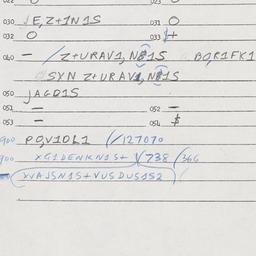 030 JE,Z+1N1S 031 O
032 O 033 $+
040 — /Z+URAV1,N01S BO,R1FK1
SYN Z+URAV1,N01S
050 JAGD1S
051 — 052 —
053 — 054 $
900 PO,V1DL1 (/127070
900 XG1DENKN1S+ 1/738 (366
XVAJSN1S+VUSDUS1S2